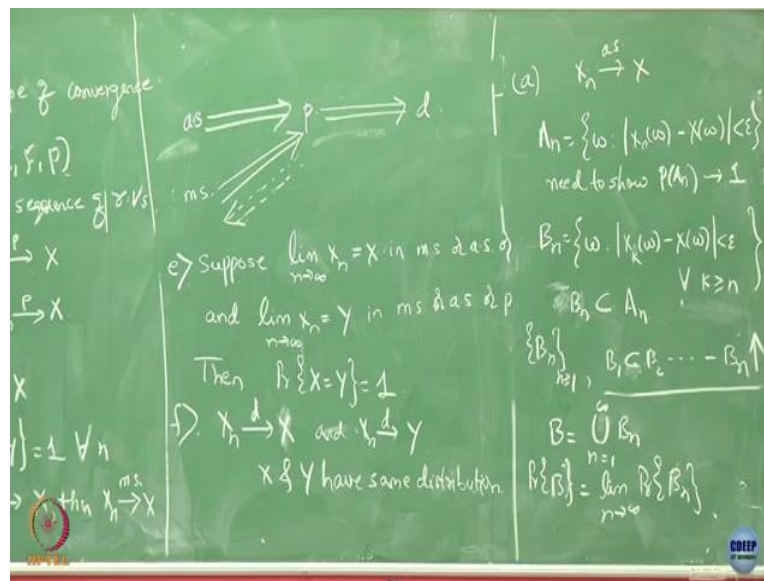 pe of convergence
, F, P)
sequence of r.vs
P→ X
P→ X
X
}=1 ∀ n
→ X, then Xn m.s.→ X
a.s ⟹ p. ⟹ d.
m.s.
e) Suppose lim n→∞ Xn = X in m.s or a.s. or
and lim n→∞ Xn = Y in m.s or a.s or p.
Then Pr{X=Y}=1
f). Xn d→ X and Xn d→ Y
X & Y have same distribution
(a) Xn as→ X
An={ω: |Xn(ω) - X(ω)|<ε}
need to show P(An) → 1
Bn={ω. |Xk(ω) - X(ω)|<ε
∀ k≥n }
Bn ⊂ An
{Bn}n≥1, B1 ⊂ B2 ---- - Bn ↑
B = ∞∪n=1 Bn
Pr{B} = lim n→∞ Pr{Bn}.
NPTEL
CDEEP
IIT BOMBAY